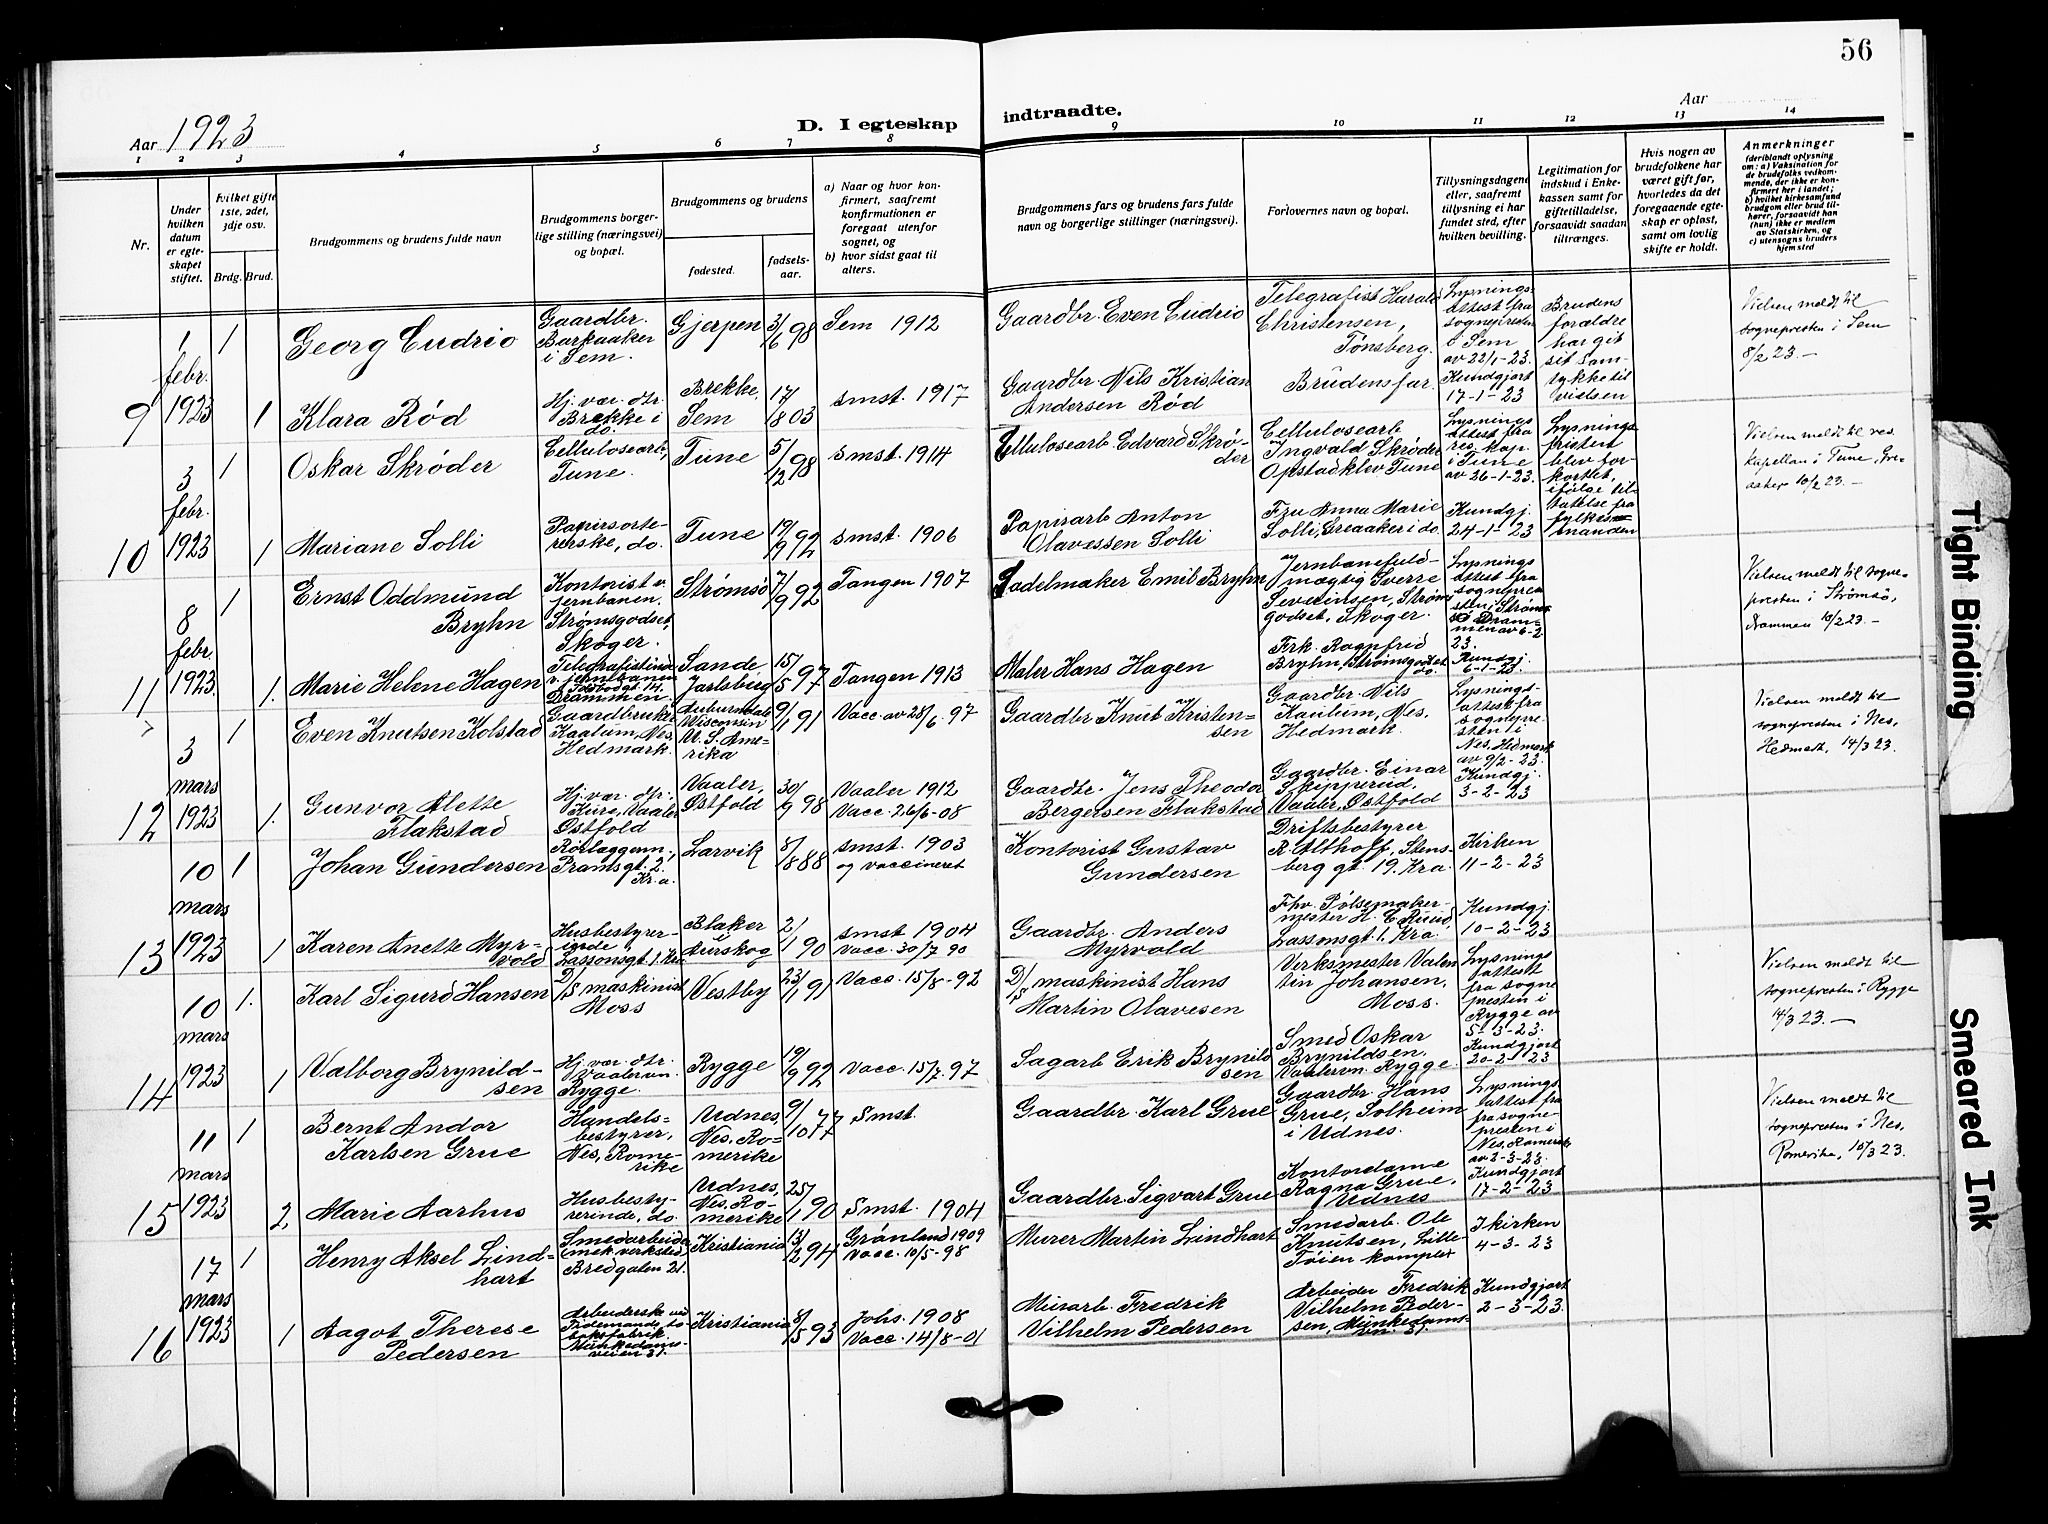 56
Aar 1923
D. I egteskap
indtraadte.
Aar
1 2 3 4 5 6 7 8 9 10 11 12 13 14
Nr.
Under hvilken datum er egteskapet stiftet.
hvilket gifte 1ste, 2det, 3dje osv.
Brdg. Brud.
Brudgommens og brudens fulde navn
Brudgommens borgerlige stilling (næringsvei) og bopæl.
Brudgommens og brudens
fødested.
fødselsaar.
a) Naar og hvor konfirmert, saafremt konfirmationen er foregaat utenfor sognet, og
b) hvor sidst gaat til alters.
Brudgommens fars og brudens fars fulde navn og borgerlige stillinger (næringsvei).
Forlovernes navn og bopæl.
Tillysningsdagene eller, saafremt tillysning ei har fundet sted, efter hvilken bevilling.
Legitimation for indskud i Enkekassen samt for giftetilladelse, forsaavidt saadan tiltrænges.
Hvis nogen av brudefolkene har været gift før, hvorledes da det foregaaende egteskap er opløst, samt om lovlig skifte er holdt.
Anmerkninger
(deriblandt oplysning om: a) Vaksination for de brudefolks vedkommende, der ikke er konfirmert her i landet; b) hvilket kirkesamfund brudgom eller brud tilhører, forsaavidt han (hun) ikke er medlem av Statskirken, og c) utensogns bruders hjemsted
1 febr. 1923 1 Georg Eudrio Gaardbr. Barkaaker i Sem. Gjerpen 3/6 98 Sem 1912 Gaardbr. Even Eudrio Telegrafist Harald Christensen, Tønsberg. Lysningsattest fra sognepresten i Sem av 22/1-23. Brudens forældre har git sit samtykke til vielsen Vielsen meldt til sognepresten i Sem 8/2 23.-
9 1 Klara Rød Hj. vær. dtr. Brekke i do. Brekke, Sem 17/8 03 smst. 1917 Gaardbr. Nils Kristian Andersen Rød Brudens far. Kundgjort 17-1-23
3 febr. 1923 1 Oskar Skrøder Cellulosearb., Tune. Tune 5/12 98 smst. 1914 Cellulosearb Edvard Skrøder Cellulosearb Ingvald Skrøder Opstadklev Tune Lysningsattest fra res. kap. i Tune av 26-1-23. Lysningsfristen blev forkortet, ifølge tillatelse fra fylkesmanden Vielsen meldt til res. kapellan i Tune, Greaaker 10/2 23.-
10 1. Mariane Solli Papirsorterærske, do. Tune 19/9 92 smst. 1906 Papirarb Anton Olavessen Solli Fru Anna Marie Solli, Greaaker i do. Kundgj. 24-1-23
8 febr 1923. 1 Ernst Oddmund Bryhn Kontorist v. jernbanen, Strømsgodset, Skoger. Strømsø 7/9 92 Tangen 1907 Sadelmaker Emil Bryhn Jernbanefuldmægtig Sverre Severinsen, Strømsgodset, Skoger. Lysningsattest fra sognepresten i Strømsø Drammen av 6-2-23. Vielsen meldt til sognepresten i Strømsø, Drammen 10/2 23.-
11 1. Marie Helene Hagen Telegrafistinde v. jernbanen Drammen. Sande Jarlsberg 15/5 97 Tangen 1913 Maler Hans Hagen Frk. Ragnfrid Bryhn, Strømsgodset do. Kundgj. 6-1-23.
3 mars 1923 1 Even Knutsen Kolstad Gaardbruker Kaalum, Nes, Hedmark. Auburndale Wisconsin U. S. Amerika 9/1 91 Vacc. av 28/6-97 Gaardbr Knut Kristensen Gaardbr. Nils Kaulum, Nes, Hedmark. Lysningsattest fra sognepresten i Nes, Hedmark av 9/2-23. Vielsen meldt til sognepresten i Nes, Hedmark, 14/3 23.
12 1. Gunvor Alette Flakstad Hj. vær. dtr. Kure, Vaaler Østfold Vaaler, Østfold 30/9 98 Vaaler 1912 Vacc. 26/6-08 Gaardbr. Jens Theodor Bergersen Flakstad Gaardbr. Einar Skipperud, Vaaler, Østfold Kundgj. 3-2-23
10 mars 1923 1 Johan Gundersen Rørlæggerm., Pramsgt. 2, Kr.a. Larvik 8/8 88 smst. 1903 og vaccineret Kontorist Gustav Gundersen Driftsbestyrer R. Althoff, Stensberg gt. 19. Kra. Kirken 11-2-23
13 1 Karen Anette Myrvold Husbestyrerinde, Lassonsgt. 1. Kra Blaker i Aurskog 2/1 90 smst. 1904 Vacc. 30/7 90 Gaardbr. Anders Myrvold Fhv. Pølsemakermester H. E. Ruud, Lassonsgt. 1. Kra. Kundgj. 10-2-23
10 mars 1923 1. Karl Sigurd Hansen D/S maskinist Moss Vestby 23/1 91 Vacc. 15/8-92 D/S maskinist Hans Martin Olavesen Verksmester Valentin Johansen, Moss. Lysningsattest fra sognepresten i Rygge av 5-3-23. Vielsen meldt til sognepresten i Rygge 14/3 23.-
14 1 Valborg Brynildsen Hj. vær. dtr. Vaalervn. Rygge. Rygge 19/9 92 Vacc. 15/7 97 Sagarb Erik Brynildsen Smed Oskar Brynildsen, Vaalervn. Rygge. Kundgjort 20-2-23
11 mars 1923 1 Bernt Andor Karlsen Grue Handelsbestyrer, Nes, Romerike Udnes, Nes. Romerike 9/10 77 Smst. Gaardbr. Karl Grue Gaardbr. Hans Grue, Solheim i Udnes. Lysningsattest fra sognepresten i Nes, Romerike av 2-3-23. Vielsen meldt til sognepresten i Nes, Romerike, 15/3 23.
15 2 Marie Aarhus Husbestyrerinde, do. Udnes, Nes. Romerike 25/1 90 Smst. 1904 Gaardbr. Sigvart Grue Kontordame Ragna Grue, Udnes Kundgjort 17-2-23
17 mars 1923 1 Henry Aksel Lindhart Smedarbeider mek. verksted Bredgaten 21. Kristiania 13/2 94 Grønland 1909 Vacc. 10/5-98 Murer Martin Lindhart Smedarb. Ole Knutsen, Lille Tøien komplex I kirken 4-3-23
16 1 Aagot Therese Pedersen Arbeiderske ved Tidemands tobaksfabrik. Munkedamsveien 31. Kristiania 8/5 93 Johs. 1908 Vacc. 14/8-01 Murarb. Fredrik Vilhelm Pedersen Arbeider Fredrik Vilhelm Pedersen, Munkedamsvn. 31. Kundgjort 2-3-23.
Tight Binding
Smeared Ink